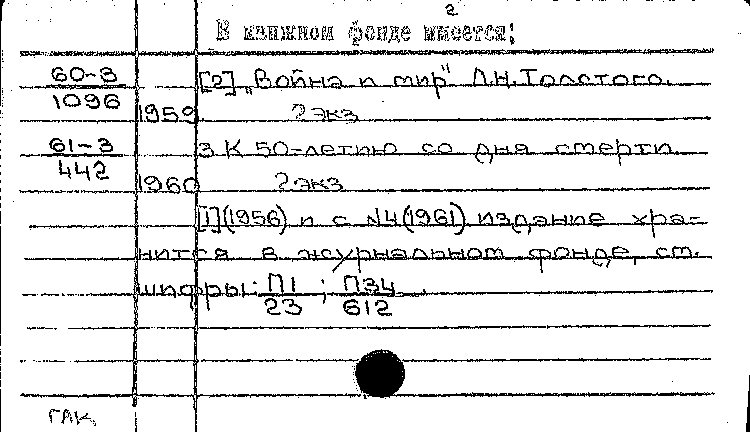 2
В книжном фонде имеется:
60-3 [2] „Война и мир" Л.Н.Толстого.
1096 1959 2 экз
61-3 3. К 50-летию со дня смерти
442 1960 2 экз
[1] (1956) и с №4(1961) издание хра-
нится в журнальном фонде, см.
шифры: П1/23 ; П34/612 .
ГАК.